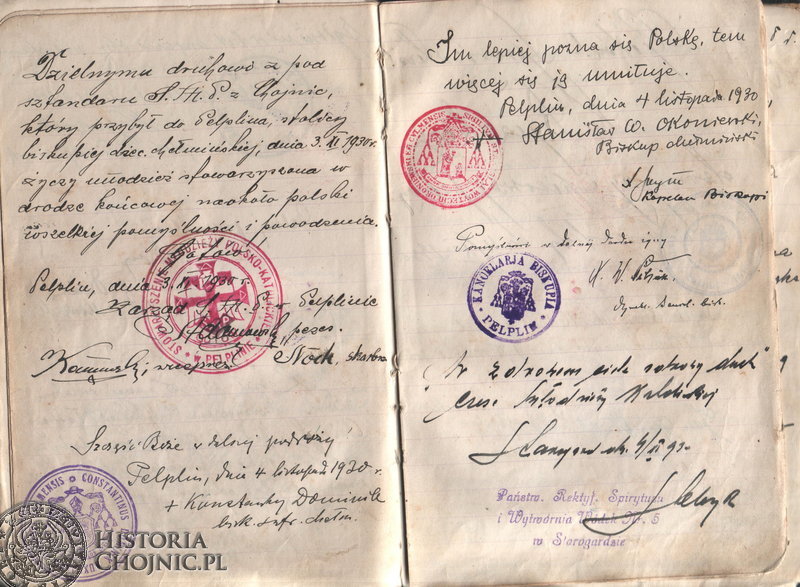 Dzielnymu druhowi z pod
sztandaru S.M.P. z Chojnic,
który przybył do Pelplina, stolicy
biskupiej djec. chełmińskiej, dnia 3.XI 1930r.
życzy młodzież stowarzyszona w
drodze końcowej naokoło polski
wszelkiej pomyślności i powodzenia.
Gotów
Pelplin, dnia 3. XI 1930 r.
Zarząd S.M.P. w Pelplinie
prezes.
wiceprez. Stock, skarbn.
STOWARZYSZENIE MŁODZIEŻY POLSKO-KATOLICKIEJ
W PELPLINIE
Szczęść Boże w dalszej podróży
Pelplin, dnia 4 listopada 1930 r.
+ Konstanty Dominik
bisk. sufr. chełm.
CONSTANTINUS
HISTORIA
CHOJNIC.PL
Im lepiej pozna się Polskę, tem
więcej się ją umiłuje.
Pelplin, dnia 4 listopada 1930
Stanisław W. Okoniewski,
Biskup chełmiński
Kapelan Biskupi
Pomyślności w dalszej
KANCELARJA BISKUPIA
PELPLIN
"W zdrowem ciele zdrowy duch"
Cześć Młodzieży
Państw. Rektyf. Spirytusu
i Wytwórnia Wódek Nr. 5
w Starogardzie